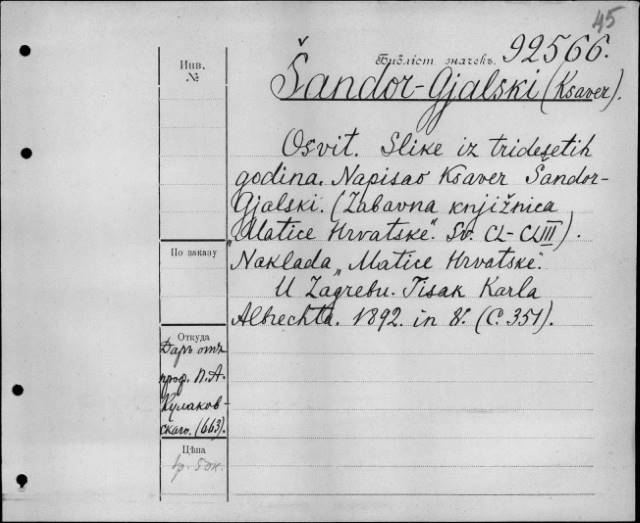 45
Инв.
№
Библіот. значекъ. 92566.
Šandor-Gjalski (Ksaver).
Osvit. Slike iz tridesetih
godina. Napisao Ksaver Šandor-
Gjalski. (Zabavna knjižnica
„Matice Hrvatske". Sv. CL-CLIII).
Naklada „Matice Hrvatske".
U Zagrebu. Tisak Karla
Albrechta. 1892. in 8°. (C. 351).
По заказу
Откуда
Даръ отъ
проф. П. А.
Кулаков-
скаго. (663).
Цѣна
1р. 50к.